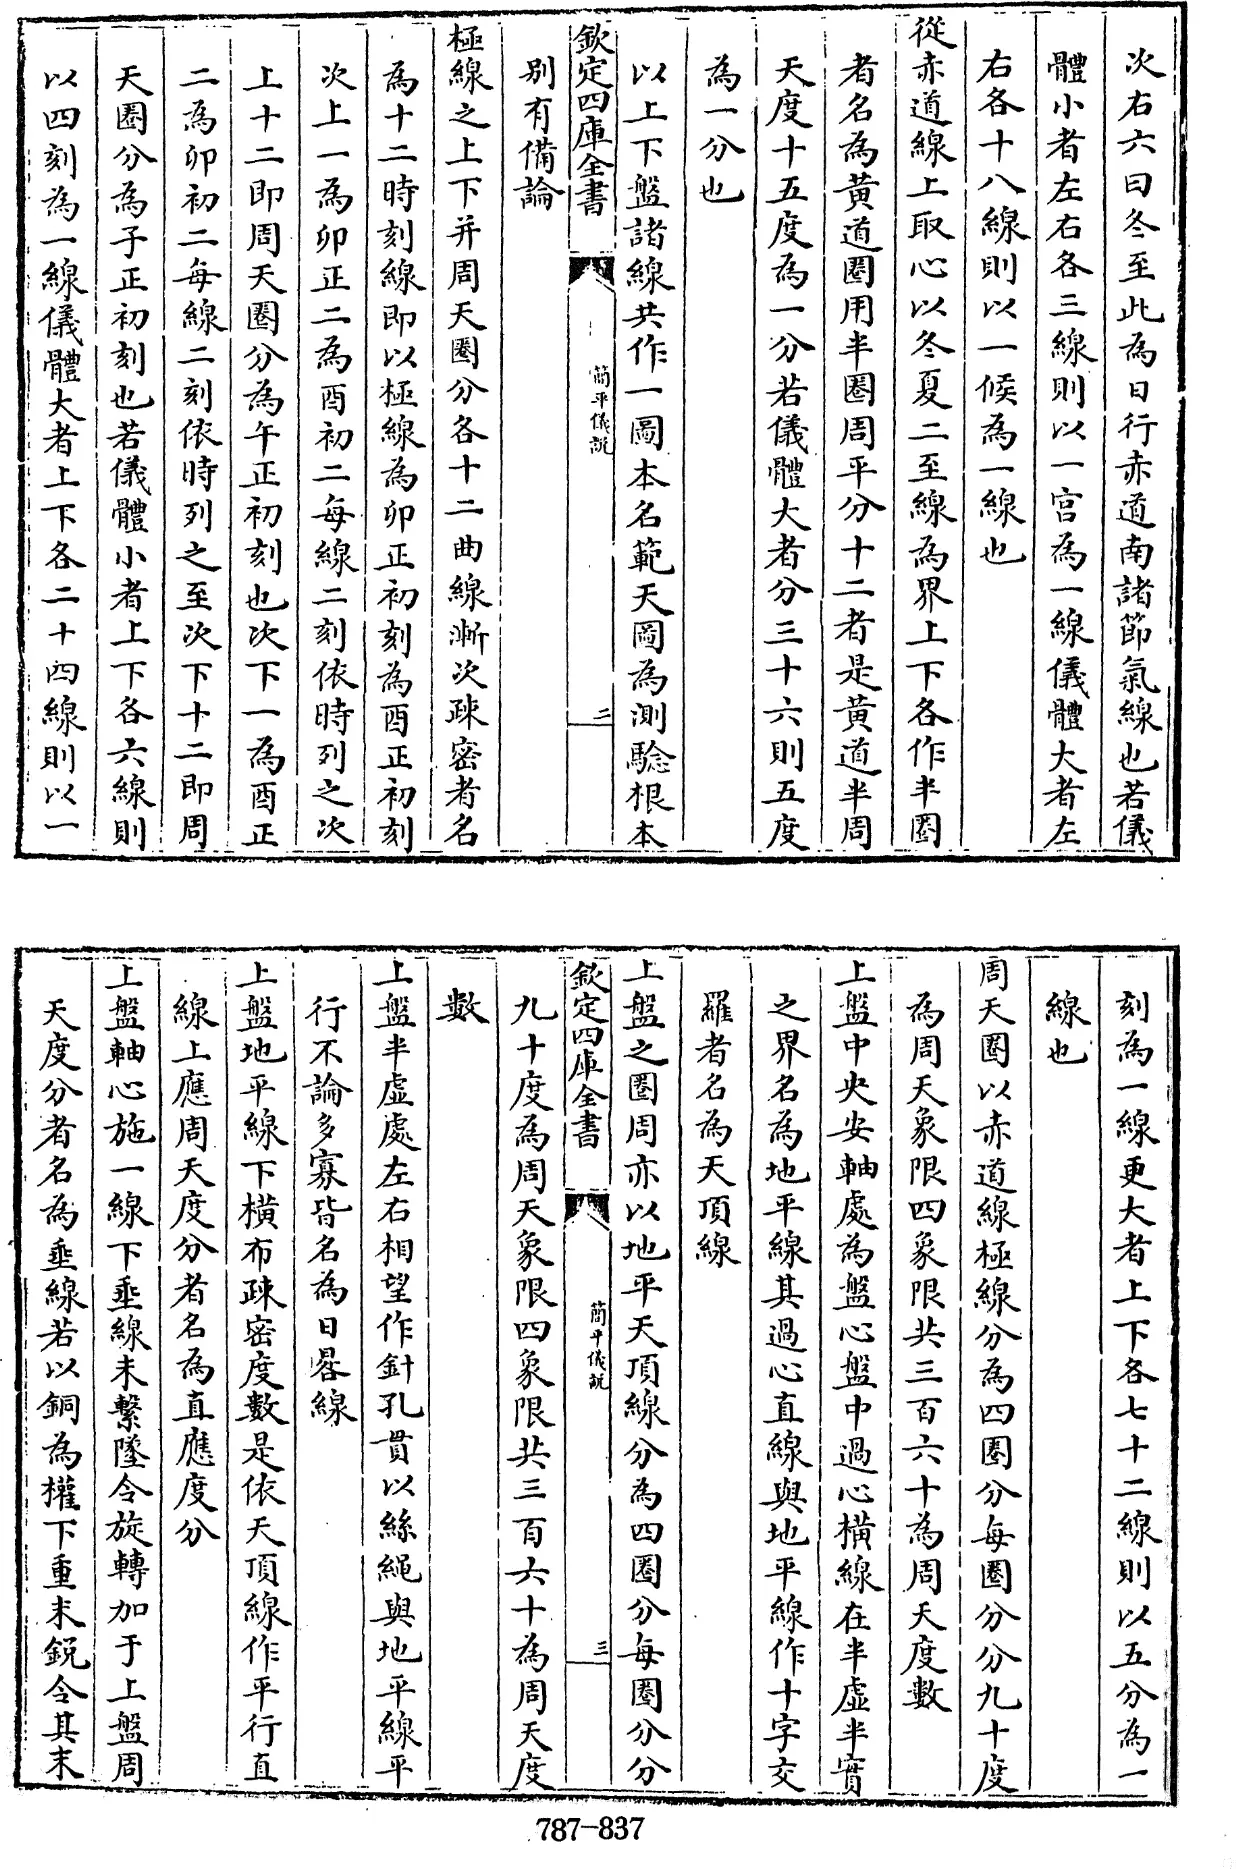 次右六曰冬至此為日行赤道南諸節氣線也若儀
體小者左右各三線則以一宮為一線儀體大者左
右各十八線則以一候為一線也
從赤道線上取心以冬夏二至線為界上下各作半圈
者名為黃道圈用半圈周平分十二者是黃道半周
天度十五度為一分若儀體大者分三十六則五度
為一分也
以上下盤諸線共作一圖本名範天圖為測驗根本
欽定四庫全書
簡平儀說
二
別有備論
極線之上下并周天圈分各十二曲線漸次疎密者名
為十二時刻線即以極線為卯正初刻為酉正初刻
次上一為卯正二為酉初二每線二刻依時列之次
上十二即周天圈分為午正初刻也次下一為酉正
二為卯初二每線二刻依時列之至次下十二即周
天圈分為子正初刻也若儀體小者上下各六線則
以四刻為一線儀體大者上下各二十四線則以一
刻為一線更大者上下各七十二線則以五分為一
線也
周天圈以赤道線極線分為四圈分每圈分分九十度
為周天象限四象限共三百六十為周天度數
上盤中央安軸處為盤心盤中過心橫線在半虛半實
之界名為地平線其過心直線與地平線作十字交
羅者名為天頂線
上盤之圈周亦以地平天頂線分為四圈分每圈分分
欽定四庫全書
簡平儀說
三
九十度為周天象限四象限共三百六十為周天度
數
上盤半虛處左右相望作針孔貫以絲繩與地平線平
行不論多寡皆名為日晷線
上盤地平線下橫布疎密度數是依天頂線作平行直
線上應周天度分者名為直應度分
上盤軸心施一線下垂線末繫墜令旋轉加于上盤周
天度分者名為垂線若以銅為權下重末銳令其末
787-837